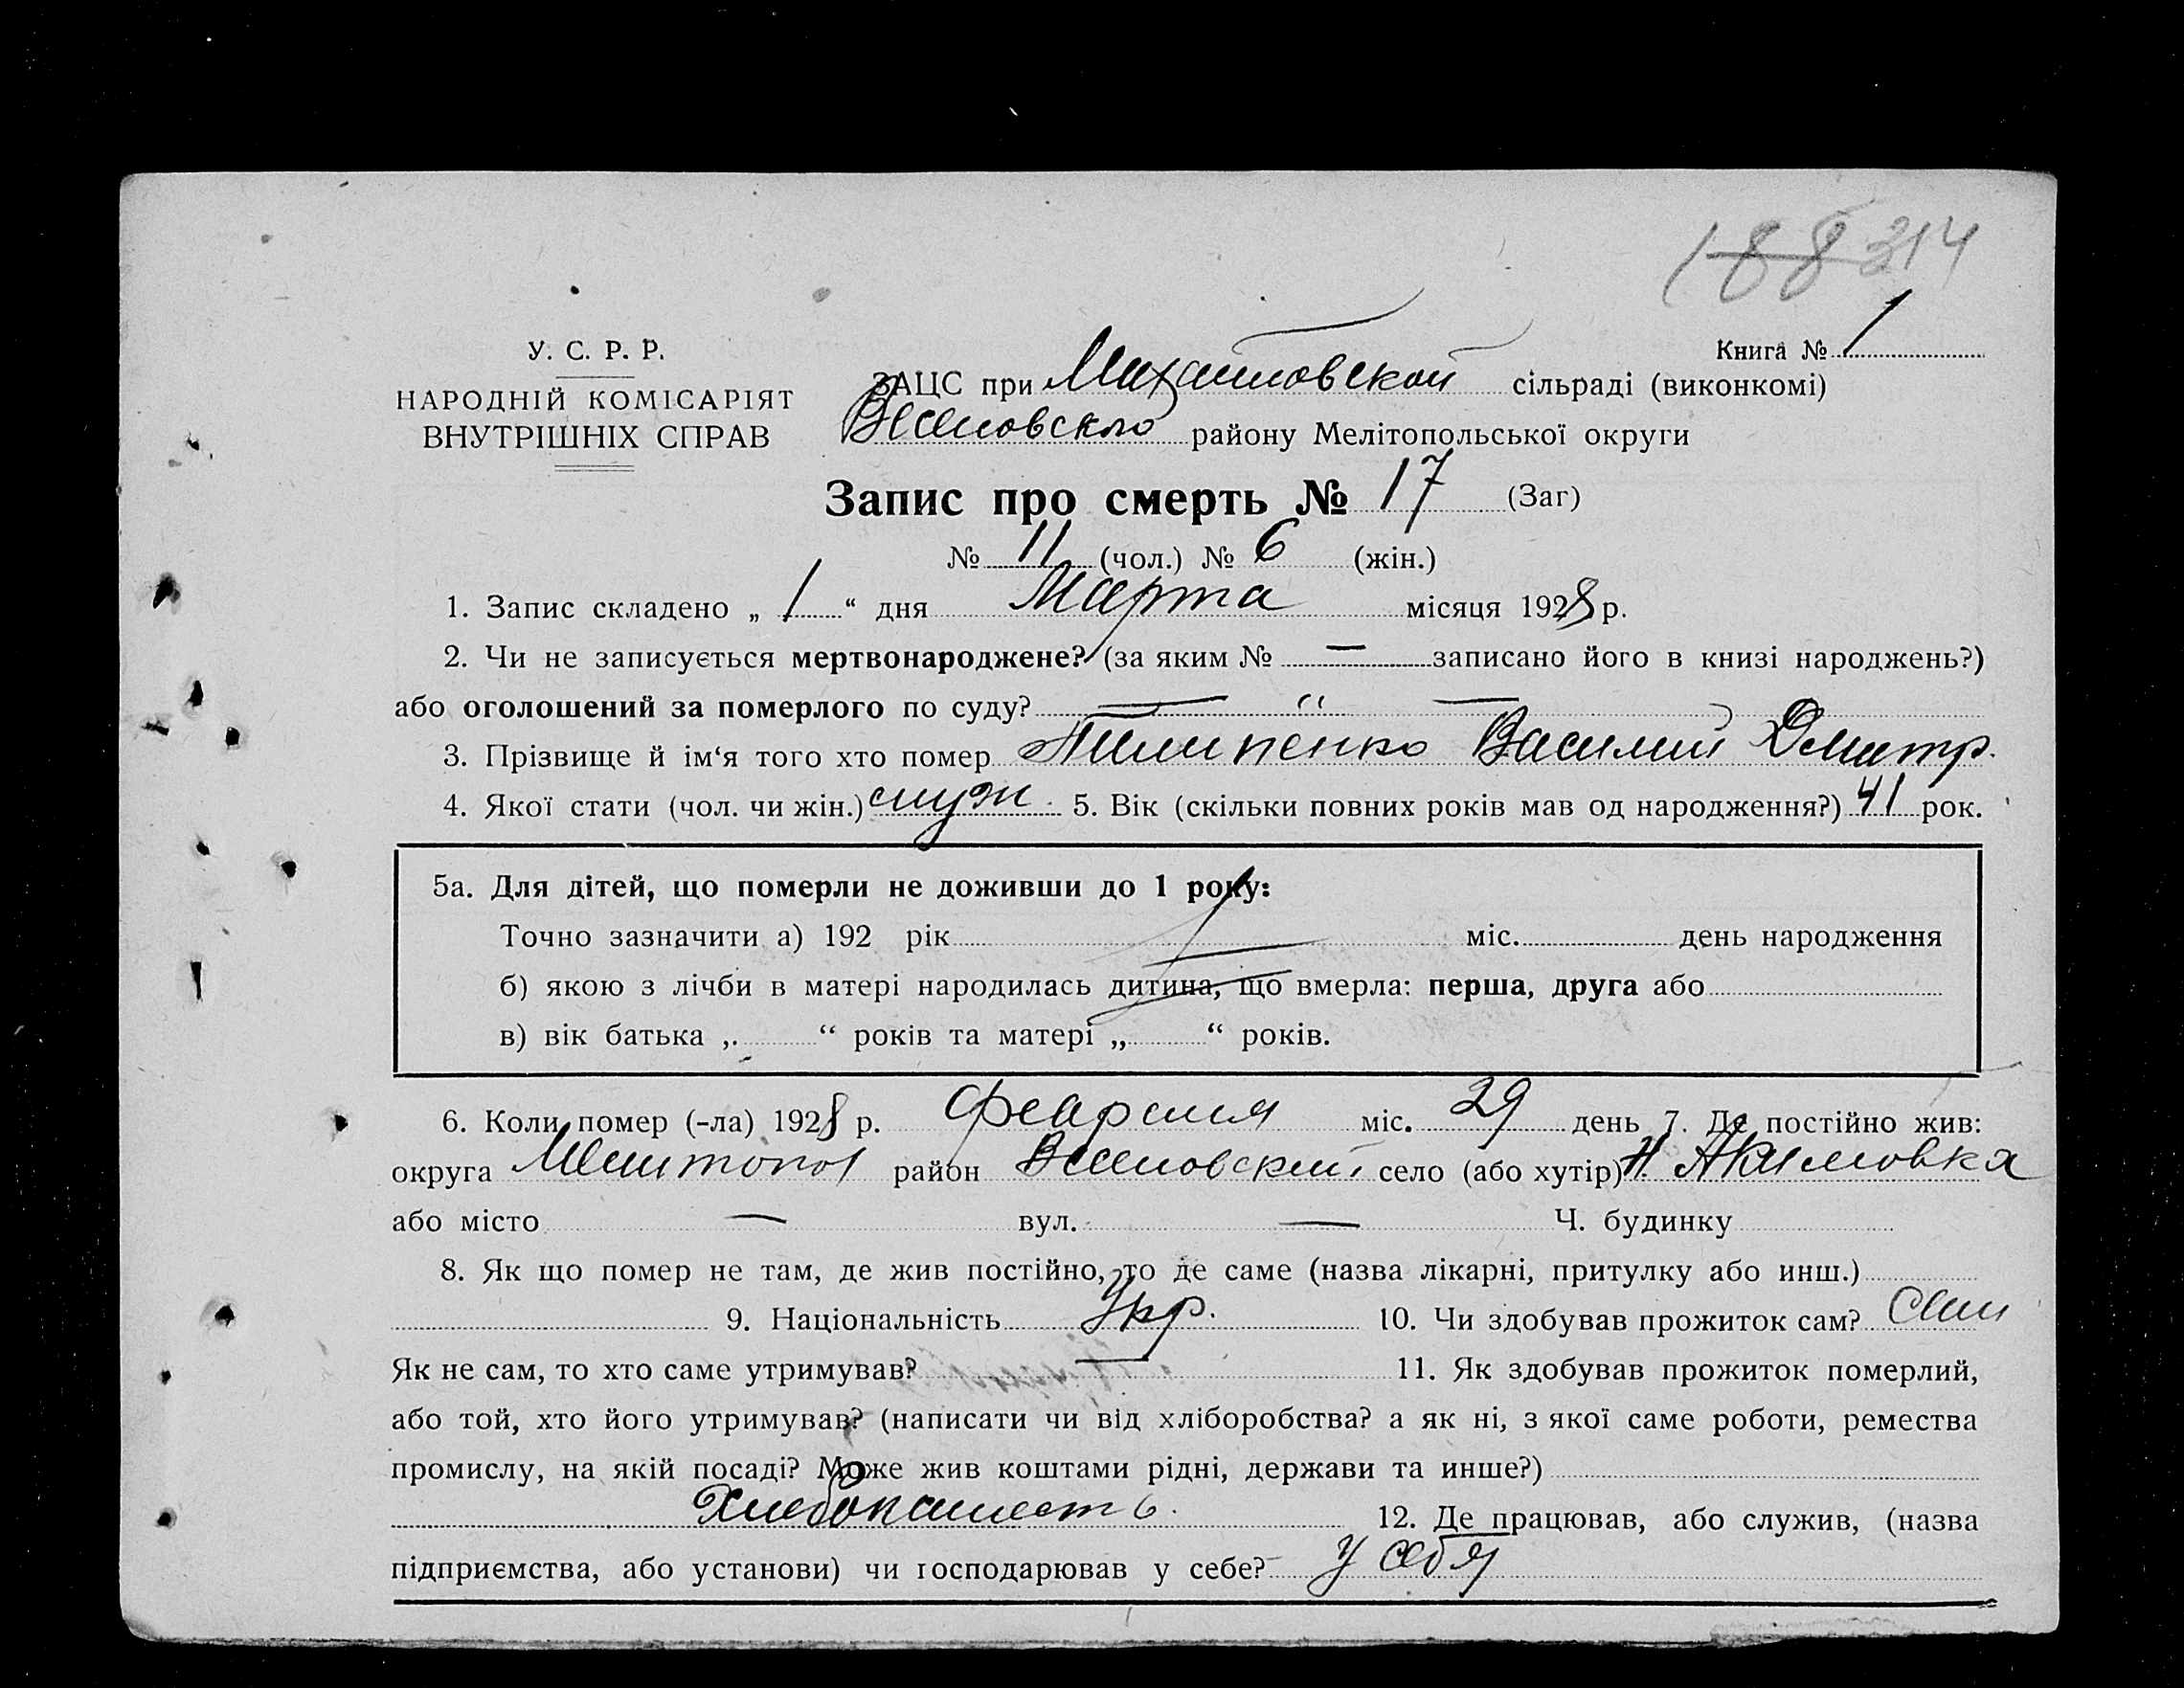 188 314
У. С. Р. Р.
Книга № 1
НАРОДНІЙ КОМІСАРІЯТ
ВНУТРІШНІХ СПРАВ
ЗАЦС при Михайловской сільраді (виконкомі)
Веселовского району Мелітопольської округи
Запис про смерть № 17 (Заг)
№ 11 (чол.) № 6 (жін.)
1. Запис складено „ 1 “ дня Марта місяця 1928 р.
2. Чи не записується мертвонароджене? (за яким № — записано його в книзі народжень?)
або оголошений за померлого по суду? — “ —
3. Прізвище й ім‘я того хто помер Василий Дмитр.
4. Якої стати (чол. чи жін.) 5. Вік (скільки повних років мав од народження?) 41 рок.
5а. Для дітей, що померли не доживши до 1 року:
Точно зазначити а) 192 рік міс. день народження
б) якою з лічби в матері народилась дитина, що вмерла: перша, друга або
в) вік батька „ “ років та матері „ “ років.
6. Коли помер (-ла) 1928 р. Февраля міс. 29 день 7. Де постійно жив:
округа Мелитопол район Веселовский село (або хутір) Н. Акимовка
або місто — вул. — Ч. будинку
8. Як що помер не там, де жив постійно, то де саме (назва лікарні, притулку або инш.)
9. Національність Укр. 10. Чи здобував прожиток сам? Сам
Як не сам, то хто саме утримував? — 11. Як здобував прожиток померлий,
або той, хто його утримував? (написати чи від хліборобства? а як ні, з якої саме роботи, ремества
промислу, на якій посаді? Може жив коштами рідні, держави та инше?)
Хлебопашест 12. Де працював, або служив, (назва
підприємства, або установи) чи господарював у себе? у себя